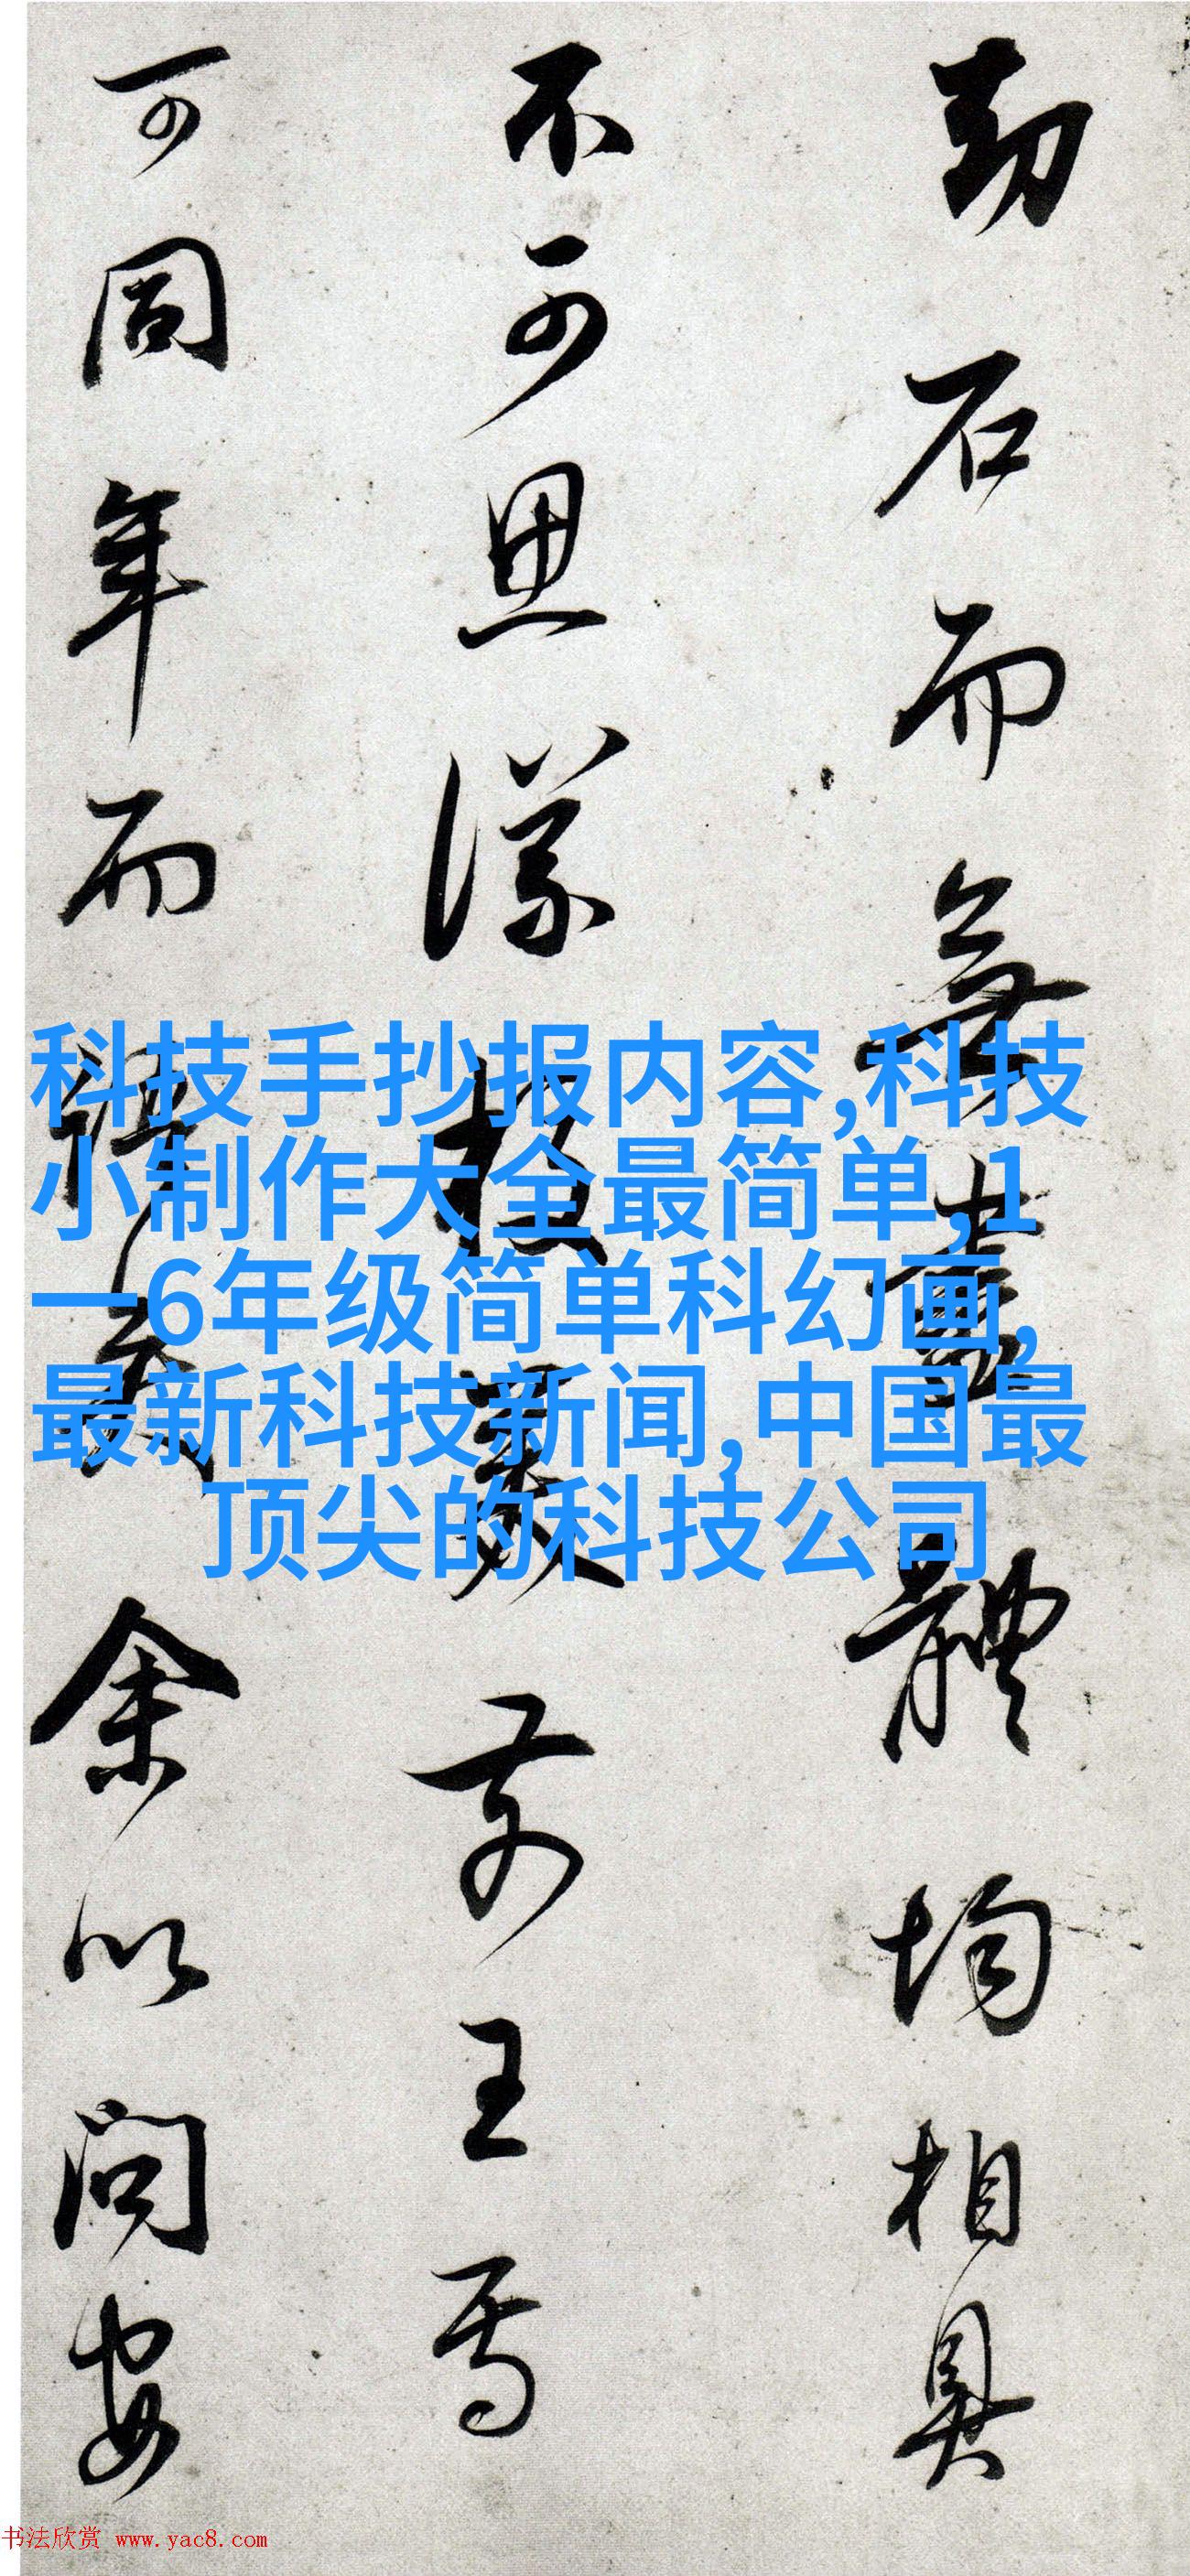 劫石而無盡體均相具
不可思議校羲前王焉
可同年而譚矣余以問安
科技手抄报内容,科技
小制作大全最简单,1
一6年级简单科幻画,
最新科技新闻,中国最
顶尖的科技公司
书法欣赏 www.yac8.com